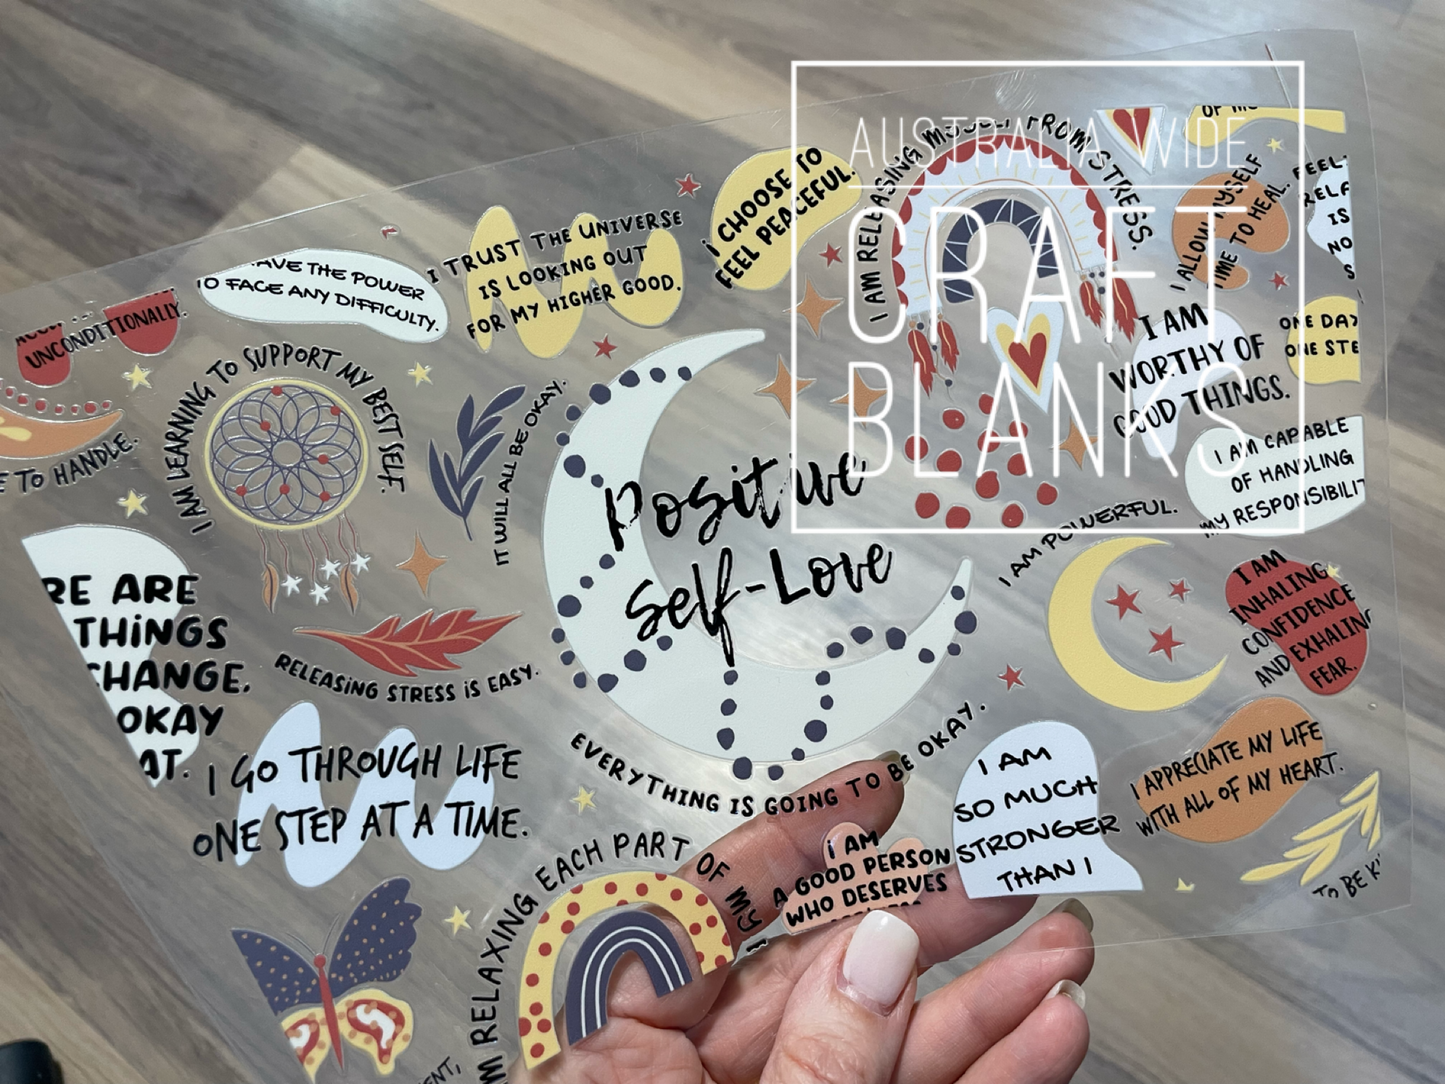 AUSTRALIA WIDE
CRAFT
BLANKS
UNCONDITIONALLY.
THE POWER
FACE ANY DIFFICULTY.
I TRUST THE UNIVERSE
IS LOOKING OUT
FOR MY HIGHER GOOD.
I CHOOSE TO
FEEL PEACEFUL.
I AM RELEASING MYSELF FROM STRESS.
I ALLOW MYSELF
TIME TO HEAL.
IS
I AM
WORTHY OF
GOOD THINGS.
ONE DAY
ONE STE
I AM CAPABLE
OF HANDLING
MY RESPONSIBILIT
TO HANDLE.
I AM LEARNING TO SUPPORT MY BEST SELF.
IT WILL ALL BE OKAY.
Positive
Self-Love
I AM POWERFUL.
I AM
INHALING
CONFIDENCE
AND EXHALING
FEAR.
RE ARE
THINGS
CHANGE.
OKAY
AT.
RELEASING STRESS IS EASY.
I GO THROUGH LIFE
ONE STEP AT A TIME.
EVERYTHING IS GOING TO BE OKAY.
I AM
SO MUCH
STRONGER
THAN I
I APPRECIATE MY LIFE
WITH ALL OF MY HEART.
I AM
A GOOD PERSON
WHO DESERVES
AM RELAXING EACH PART OF MY
TO BE K
ENT,